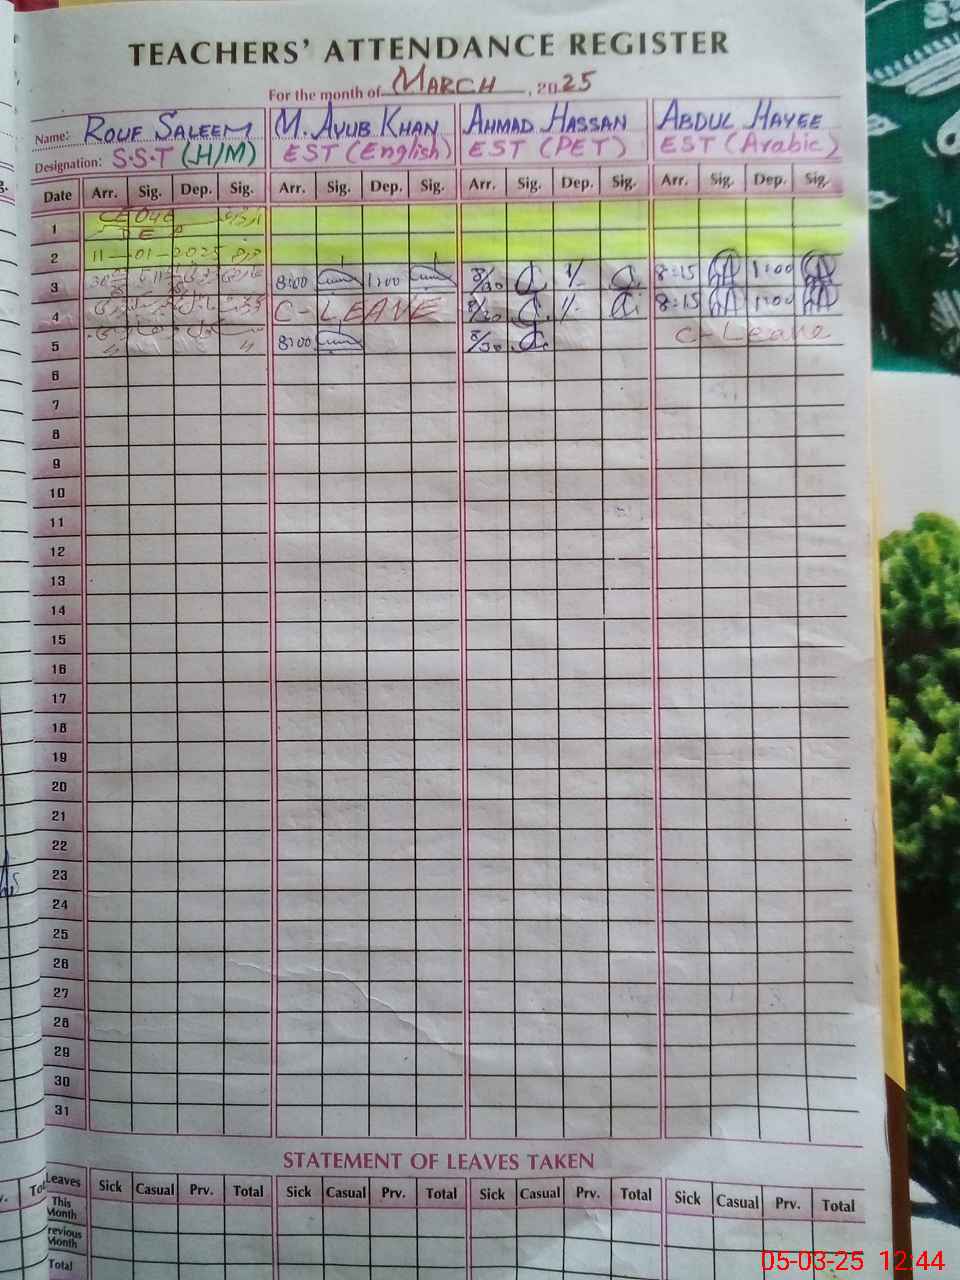 TEACHERS' ATTENDANCE REGISTER
For the month of MARCH, 2025
Name: ROUF SALEEM M. AYUB KHAN AHMAD HASSAN ABDUL HAYEE
Designation: S.S.T (H/M) EST (English) EST (PET) EST (Arabic)
Date Arr. Sig. Dep. Sig. Arr. Sig. Dep. Sig. Arr. Sig. Dep. Sig. Arr. Sig. Dep. Sig.
1
2 11-01-2025
3 8:00 1:00 8/30 1/- 8:15 1:00
4 C-LEAVE 8/30 1/- 8:15 1:00
5 8:00 8/30 C-Leave
6
7
8
9
10
11
12
13
14
15
16
17
18
19
20
21
22
23
24
25
26
27
28
29
30
31
STATEMENT OF LEAVES TAKEN
Leaves Sick Casual Prv. Total Sick Casual Prv. Total Sick Casual Prv. Total Sick Casual Prv. Total
This Month
revious Month
Total
05-03-25 12:44